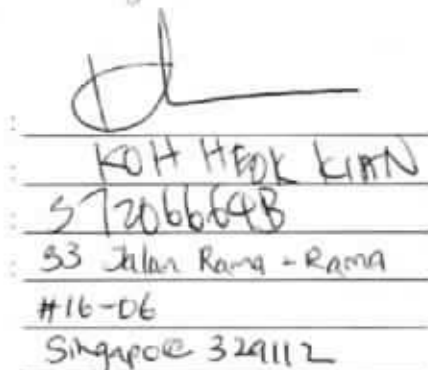 KOH HEOK KIAN
S7206664B
33 Jalan Rama - Rama
#16-06
Singapoe 329112